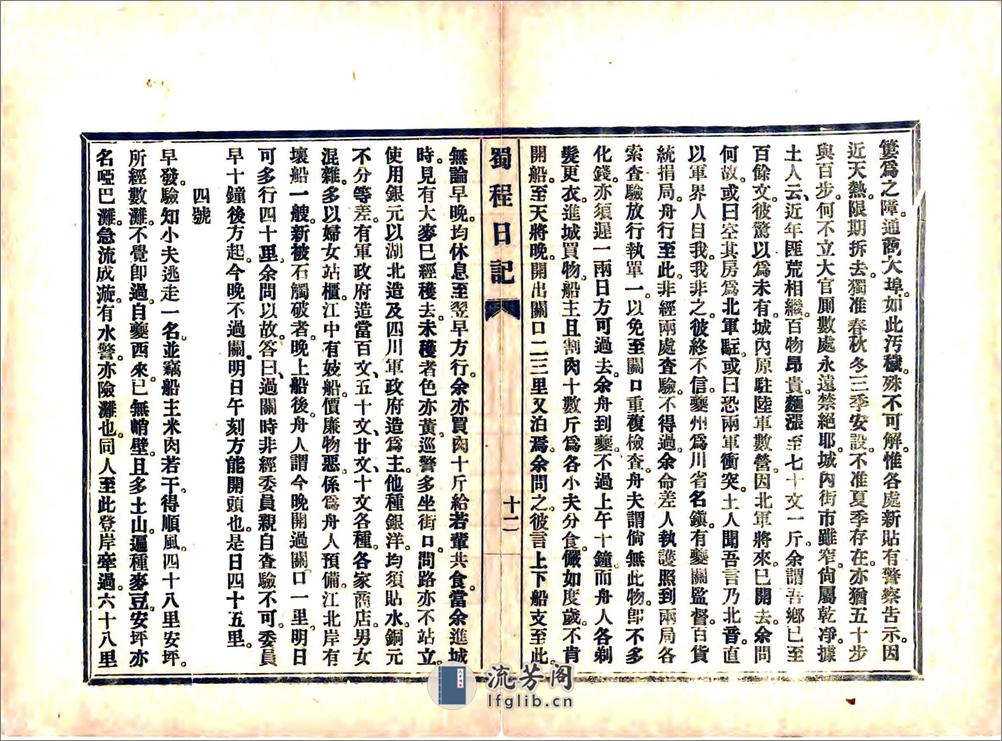 簍爲之障通商大埠如此汚穢殊不可解惟各處新貼有警察告示。因
近天熱限期拆去獨准春秋冬三季安設不准夏季存在亦猶五十步
與百步何不立大官厠數處永遠禁絕耶城內街市雖窄尙屬乾淨據
土人云、近年匪荒相繼百物昂貴麵漲至七十文一斤余謂吾鄉已至
百餘文彼驚以爲未有城內原駐陸軍數營因北軍將來已開去余問
何故或曰空其房爲北軍駐或曰恐兩軍衝突土人聞吾言乃北音直
以軍界人目我我非之彼終不信夔州爲川省名鎭有夔關監督百貨
統捐局舟行至此非經兩處查驗不得過余命差人執護照到兩局各
索查驗放行執單一以免至關口重復檢查舟夫謂倘無此物卽不多
化錢亦須遲一兩日方可過去余舟到夔不過上午十鐘而舟人各剃
髮更衣進城買物船主且割肉十數斤爲各小夫分食儼如度歲不肯
開船至天將晚開出關口二三里又泊焉余問之彼言上下船支至此
蜀程日記
十一
無論早晚均休息至翌早方行余亦買肉十斤給若輩共食當余進城
時見有大麥已經穫去未穫者色亦黃巡警多坐街口問路亦不站立
使用銀元以湖北造及四川軍政府造爲主他種銀洋均須貼水銅元
不分等差有軍政府造當百文、五十文、廿文、十文各種各家商店男女
混雜多以婦女站櫃江中有妓船價廉物惡係爲舟人預備江北岸有
壞船一艘新被石觸破者晚上船後舟人謂今晚開過關口一里明日
可多行四十里余問以故答曰過關時非經委員親自查驗不可委員
早十鐘後方起今晚不過關明日午刻方能開頭也是日四十五里。
四號
早發驗知小夫逃走一名並竊船主米肉若干得順風四十八里安坪。
所經數灘不覺卽過自夔西來已無峭壁且多土山遍種麥豆安坪亦
名啞巴灘急流成漩有水警亦險灘也同人至此登岸牽過六十八里
流芳阁
lfglib.cn